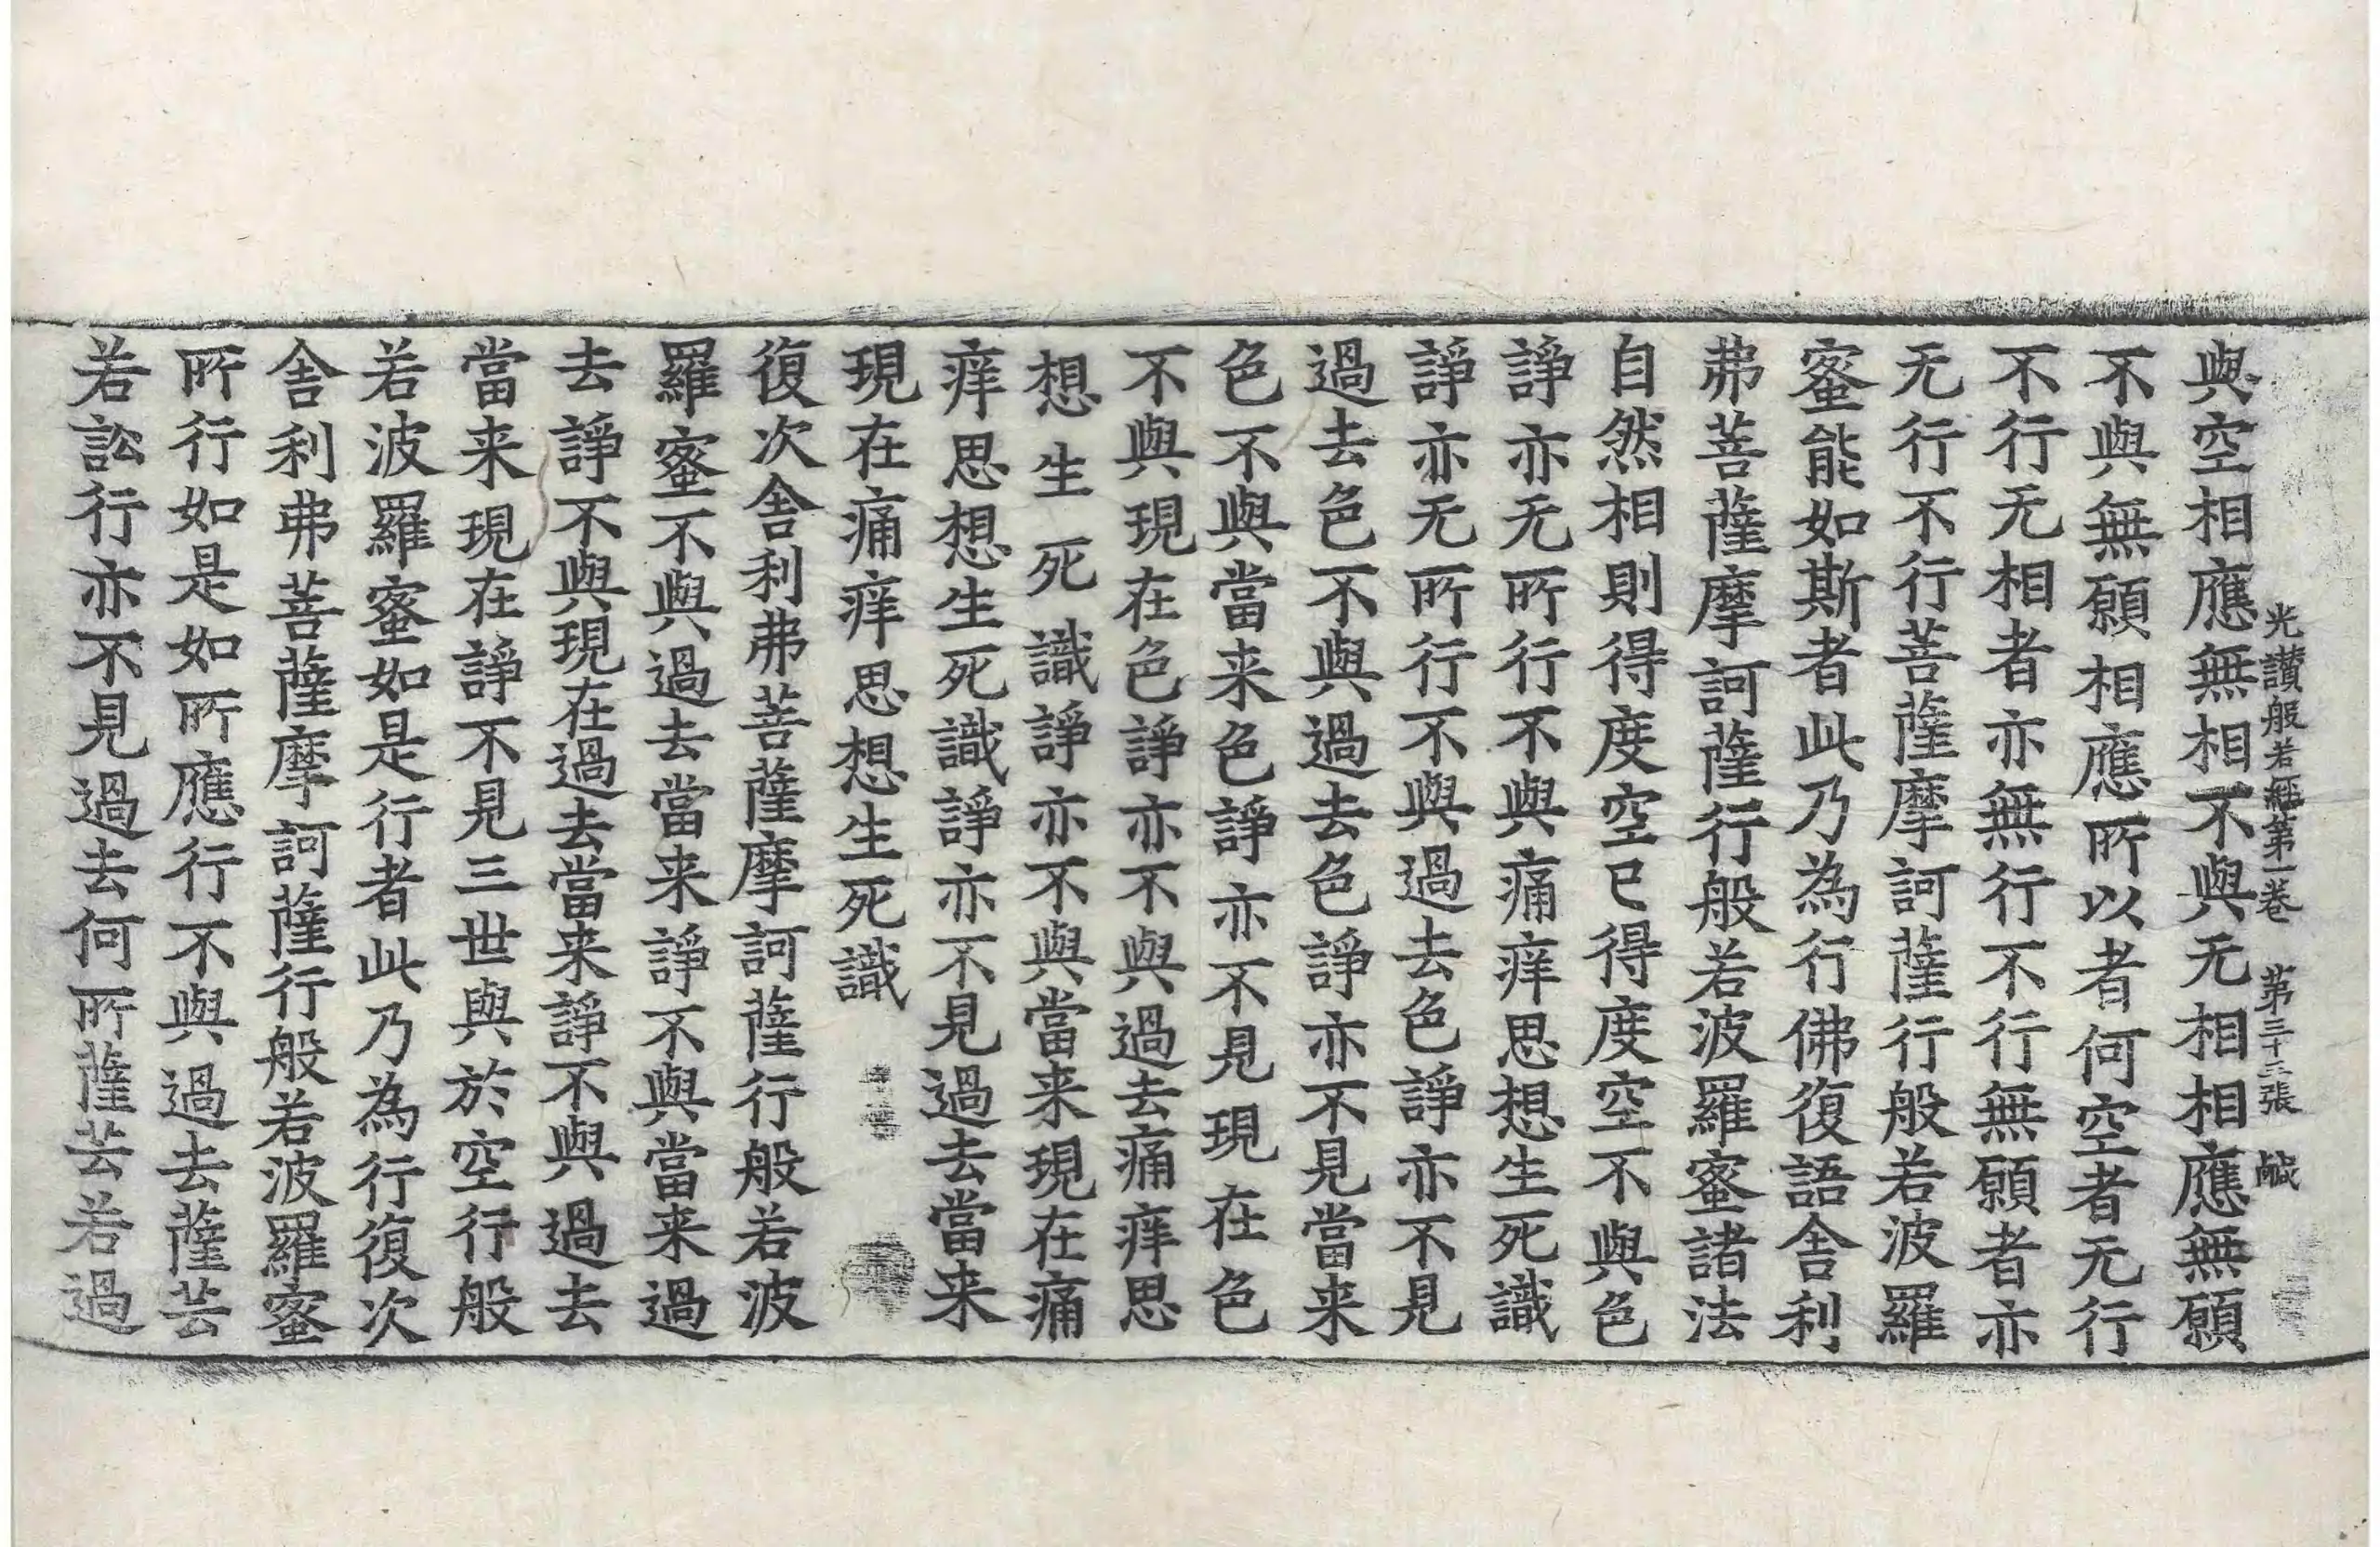 光讚般若經第一卷　第三十三張　鹹
與空相應無相不與无相相應無願
不與無願相應所以者何空者无行
不行无相者亦無行不行無願者亦
无行不行菩薩摩訶薩行般若波羅
蜜能如斯者此乃為行佛復語舍利
弗菩薩摩訶薩行般若波羅蜜諸法
自然相則得度空已得度空不與色
諍亦无所行不與痛痒思想生死識
諍亦无所行行不與過去色諍亦不見
過去色不與過去色諍亦不見當来
色不與當来色諍亦不見現在色
不與現在色諍亦不與過去痛痒思
想生死識諍亦不與當来現在痛
痒思想生死識諍亦不見過去當来
現在痛痒思想生死識
復次舍利弗菩薩摩訶薩行般若波
羅蜜不與過去當来諍不與當来過
去諍不與現在過去當来諍不與過去
當来現在諍不見三世與於空行般
若波羅蜜如是行者此乃為行復次
舍利弗菩薩摩訶薩行般若波羅蜜
所行如是如所應行不與過去薩芸
若訟行亦不見過去何所薩芸若過